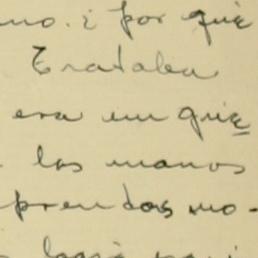 no. ¿por qué
Trataba
era un que
las manos
prendas mo-